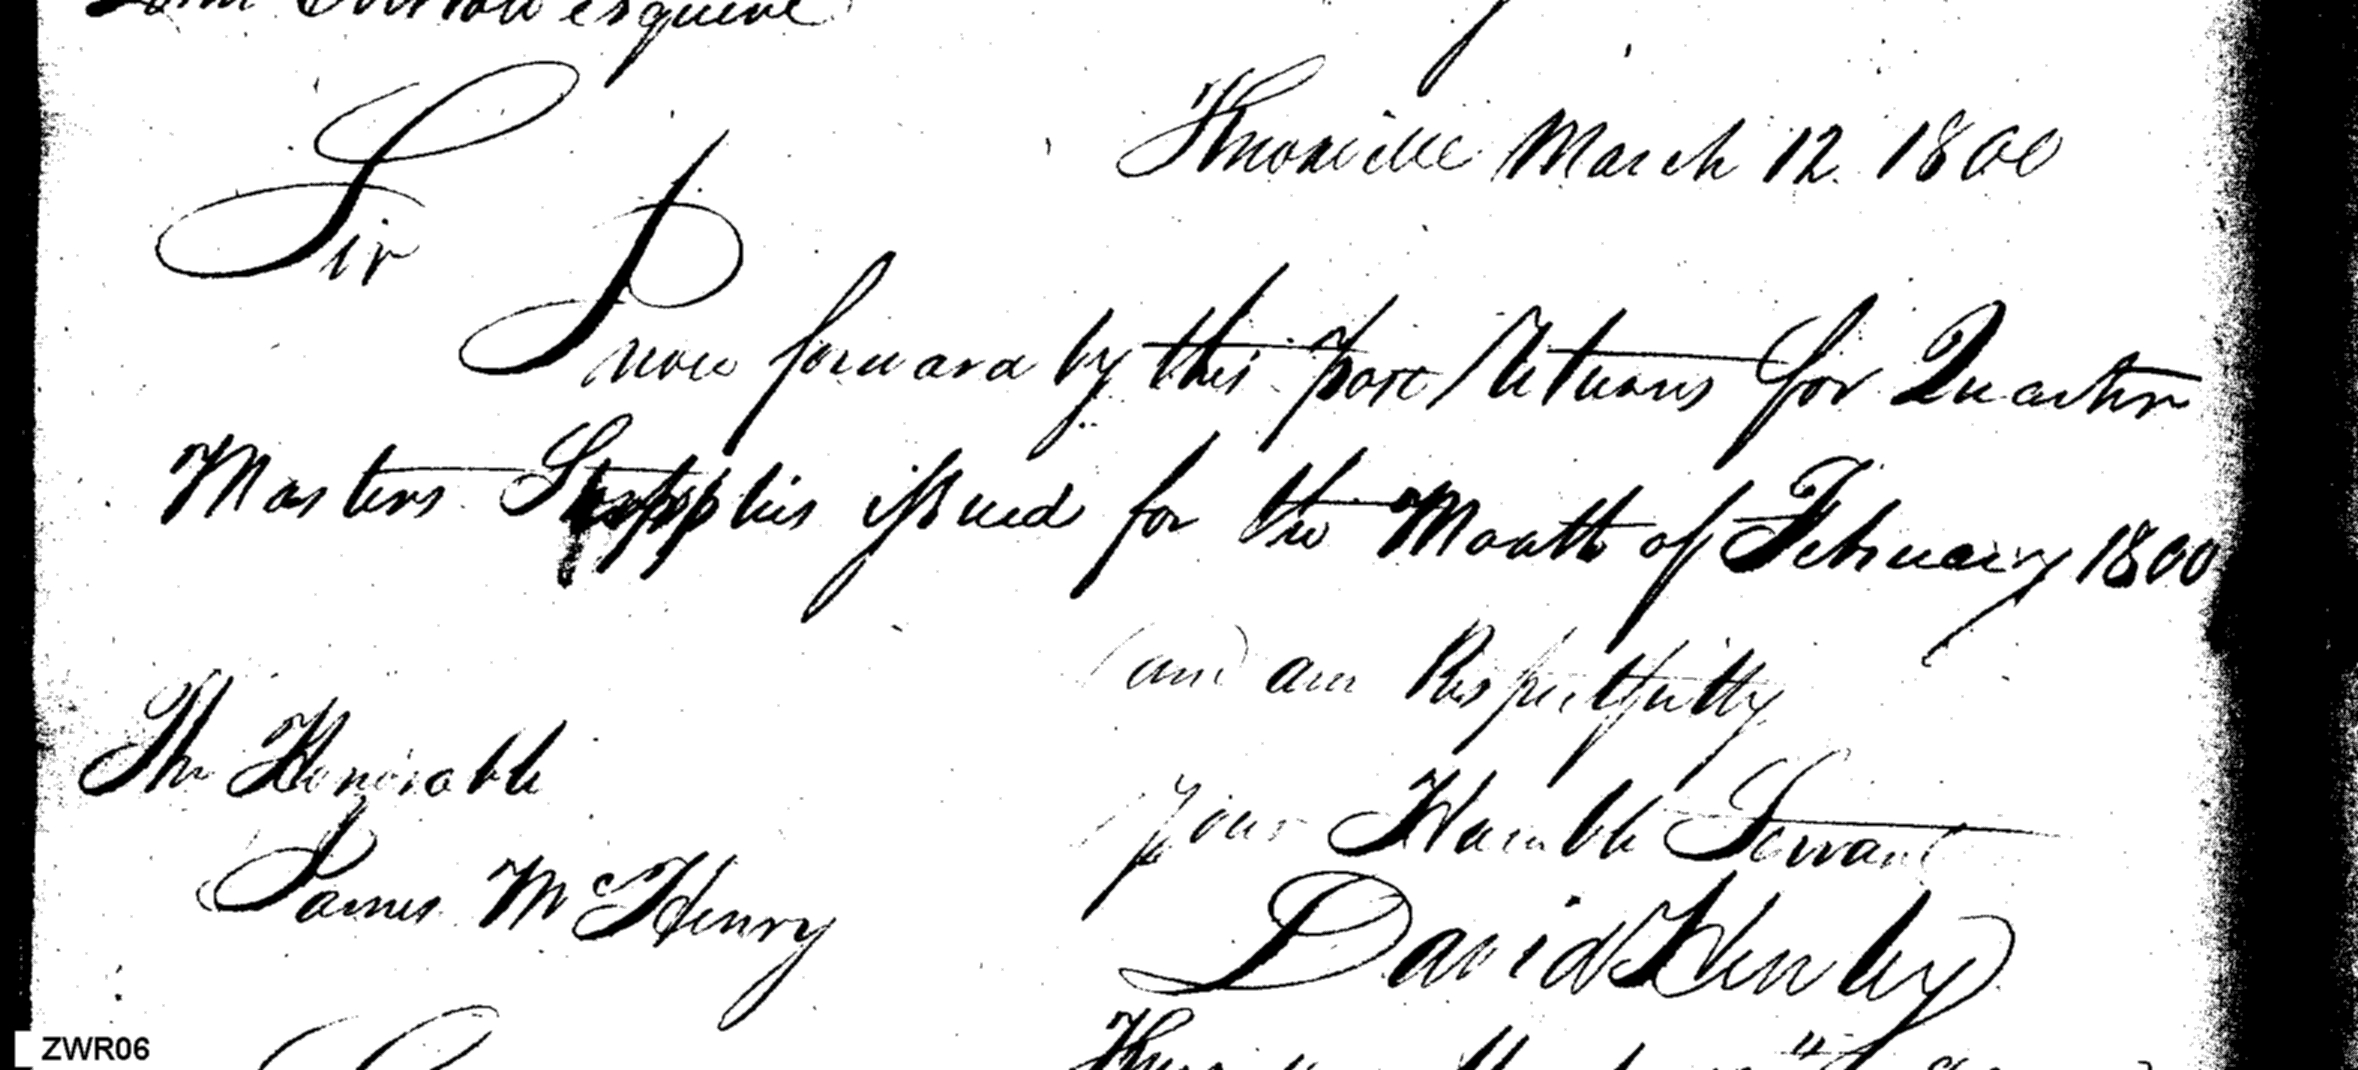 esquire
Knoxville March 12. 1800
Sir
I now forward by this post Returns for Quarter
Masters Supplies issued for the Month of February 1800
and am Respectfully
The Honorable
Your Humble Servant
James McHenry
David Henley
ZWR06